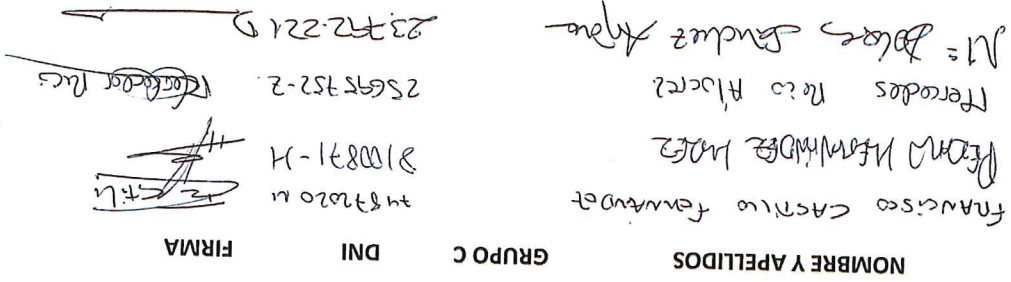 NOMBRE Y APELLIDOS GRUPO C DNI FIRMA
FRANCISCO CASTILLO FERNANDEZ 74872020 N
PEDRO HERNÁNDEZ LÓPEZ 3100871-H
Mercedes Recio Alvarez 25695752-Z. Mercedes Reci
Mª Dolores Sánchez 23.792.221 D